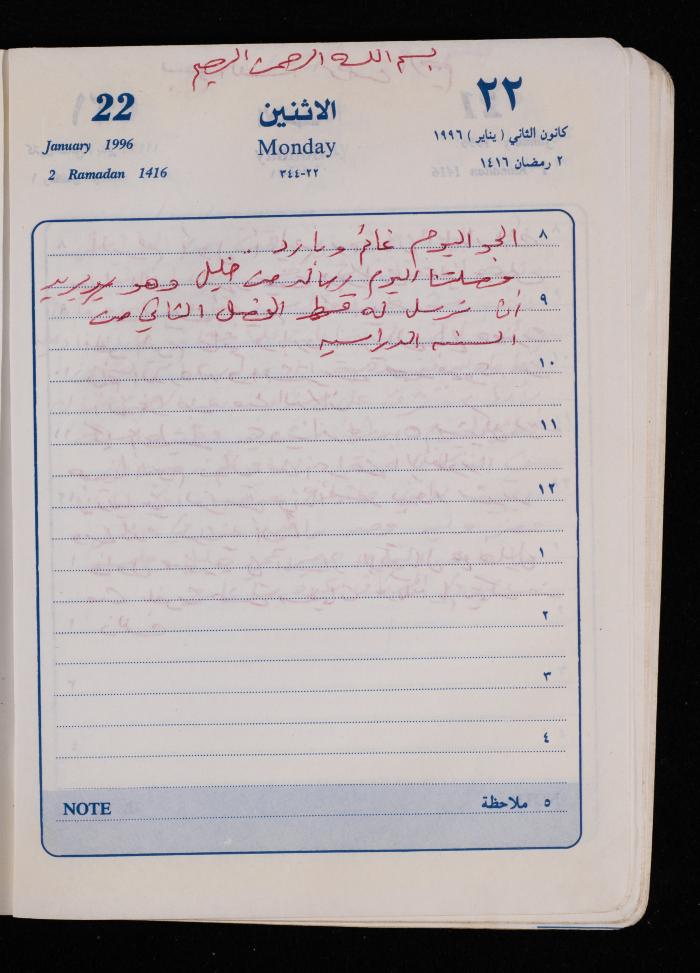 بسم الله الرحمن الرحيم
22 الاثنين ٢٢
January 1996 Monday كانون الثاني ( يناير ) ١٩٩٦
2 Ramadan 1416 ٢٢-٣٤٤ ٢ رمضان ١٤١٦
٨ الجو اليوم غائم وبارد .
اليوم رسالة من خليل وهو يريد
٩ أن نرسل له قسط الفصل الثاني من
السنه الدراسيه
١٠
١١
١٢
١
٢
٣
٤
NOTE ٥ ملاحظة